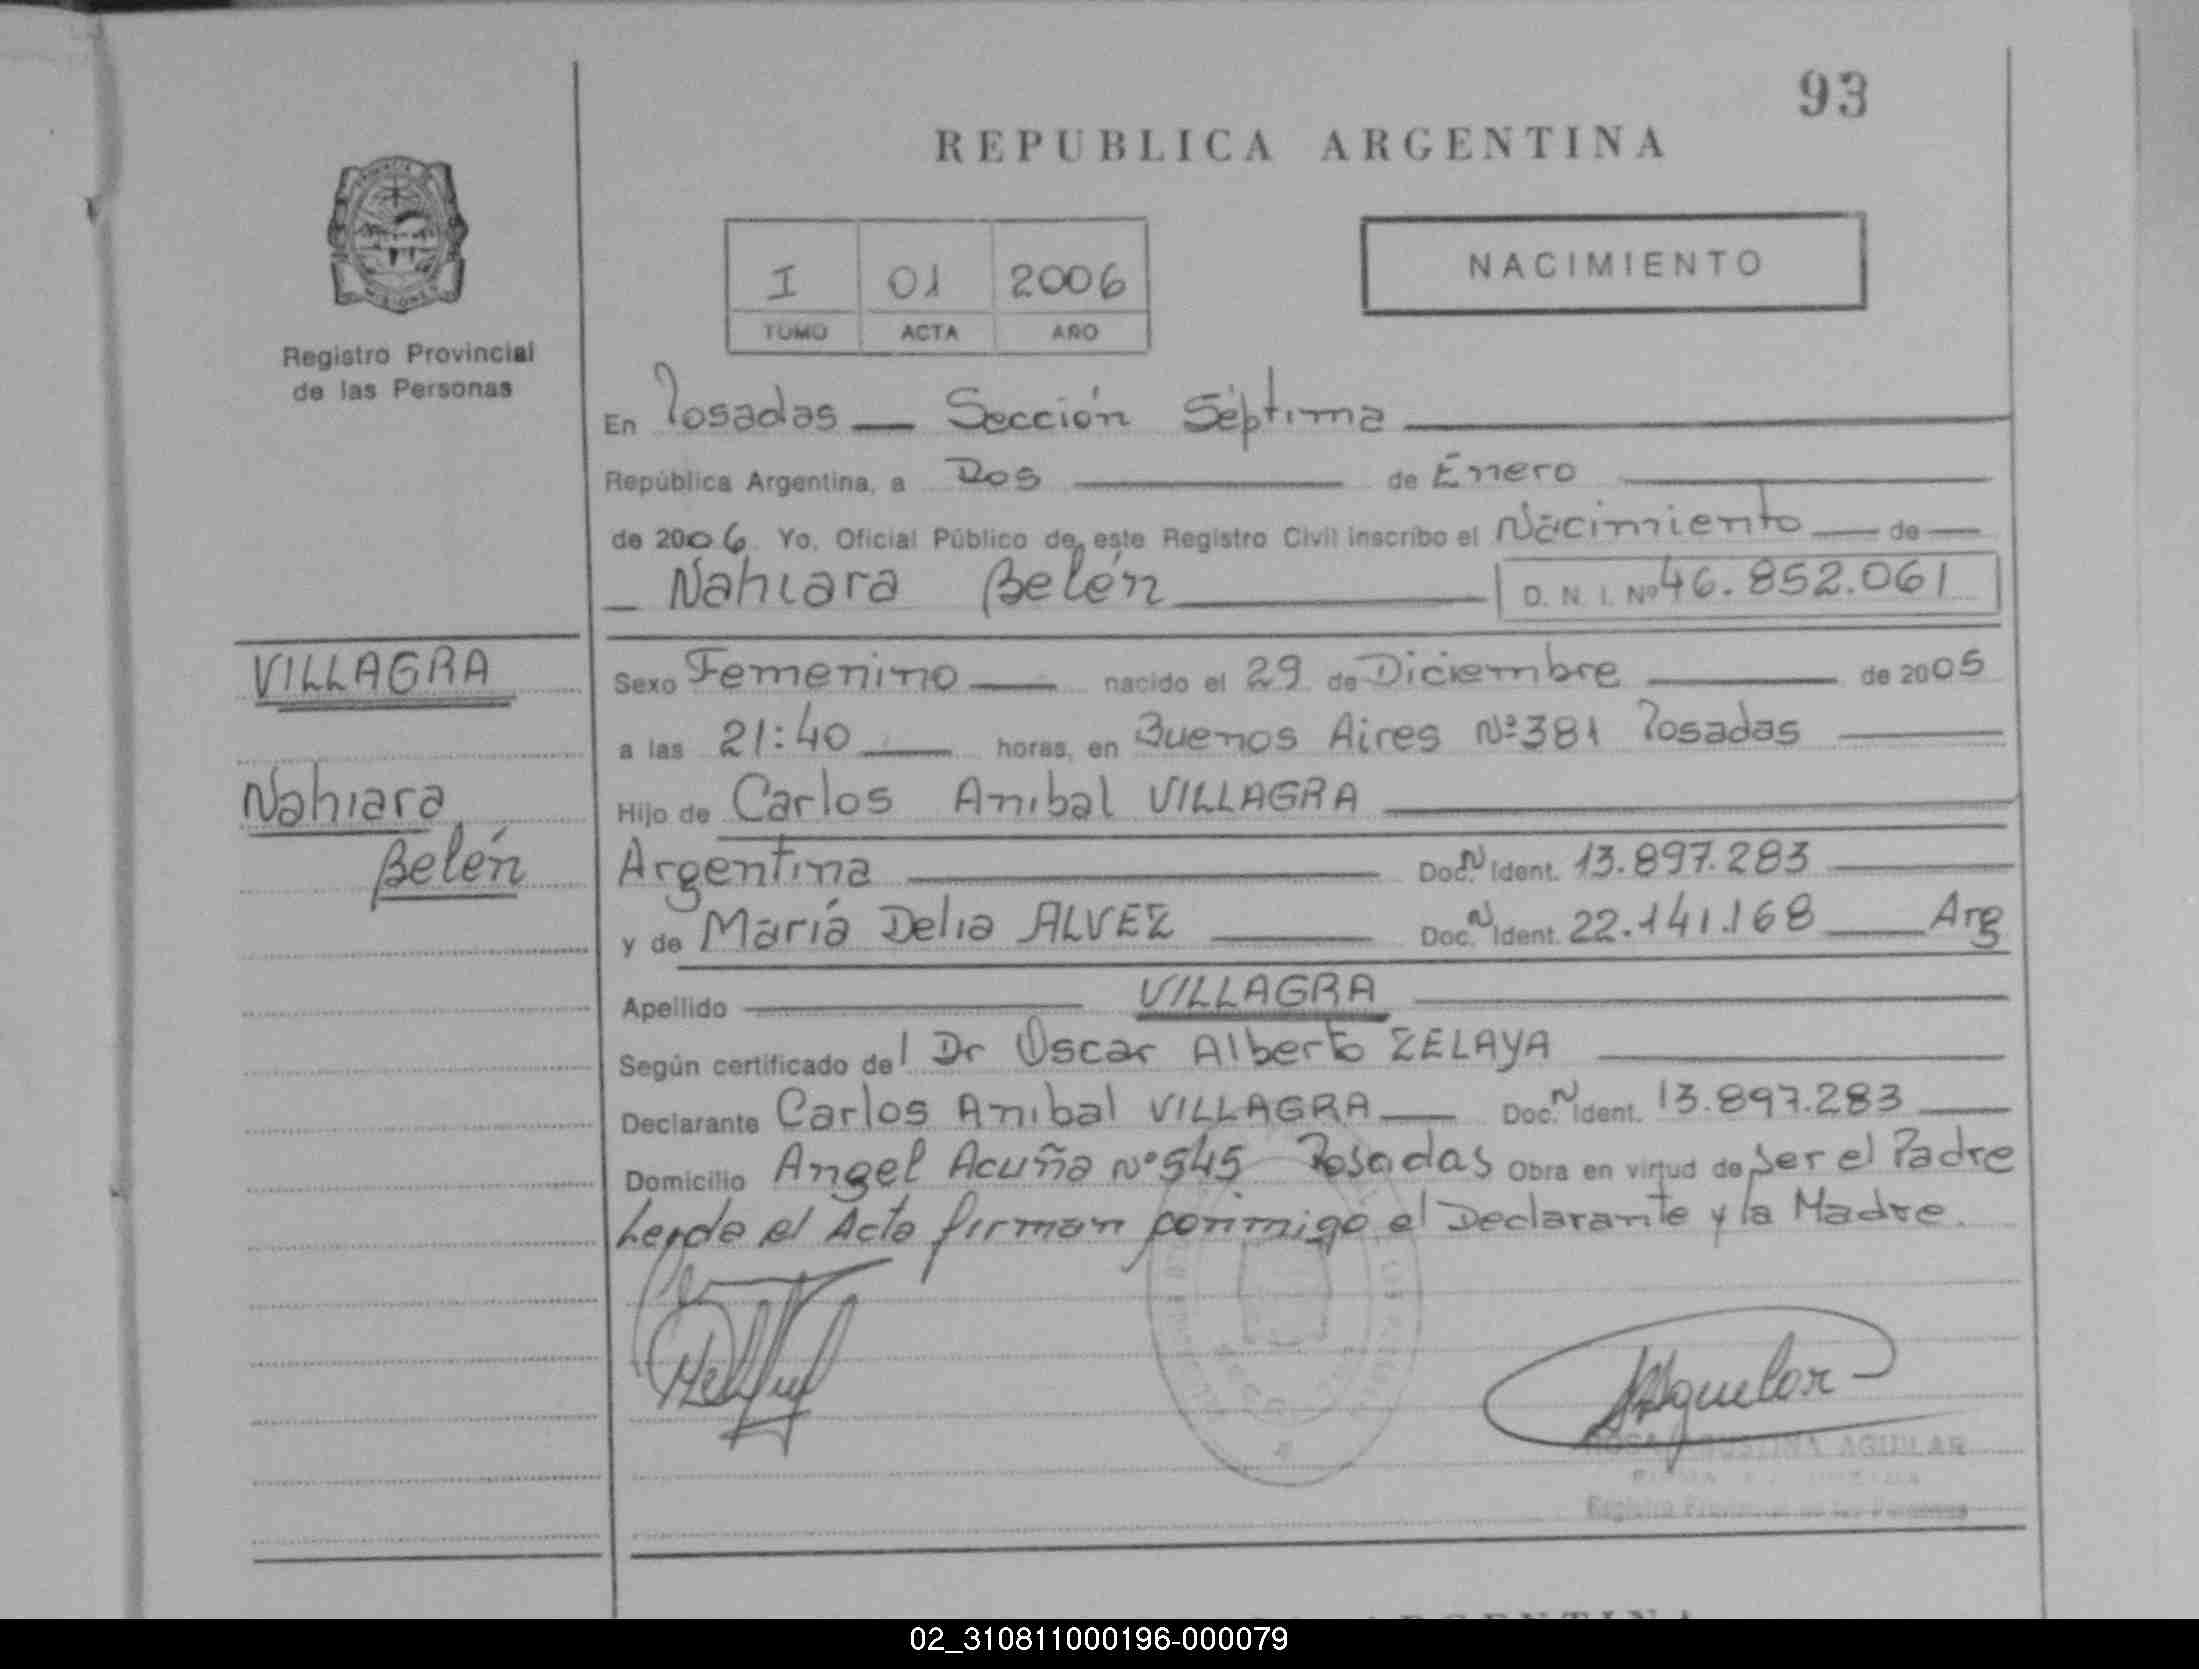 93
REPUBLICA ARGENTINA
I 01 2006
TOMO ACTA AÑO
NACIMIENTO
Registro Provincial
de las Personas
En Posadas — Sección Séptima
República Argentina, a Dos de Enero
de 2006. Yo, Oficial Público de este Registro Civil inscribo el Nacimiento de
Nahiara Belén D. N. I. Nº 46.852.061
VILLAGRA
Nahiara
Belén
Sexo Femenino nacido el 29 de Diciembre de 2005
a las 21:40 horas, en Buenos Aires Nº 381 Posadas
Hijo de Carlos Anibal VILLAGRA
Argentina Doc. N Ident. 13.897.283
y de María Delia ALVEZ Doc. N Ident. 22.141.168 Arg
Apellido VILLAGRA
Según certificado del Dr Oscar Alberto ZELAYA
Declarante Carlos Anibal VILLAGRA Doc. N Ident. 13.897.283
Domicilio Angel Acuña Nº 545 Posadas Obra en virtud de ser el Padre
Leyda el Acta firman conmigo el Declarante y la Madre.
Aguilar
ROSA AGUSTINA AGUILAR
Registro Provincial de las Personas
ARGENTINA
02_310811000196-000079